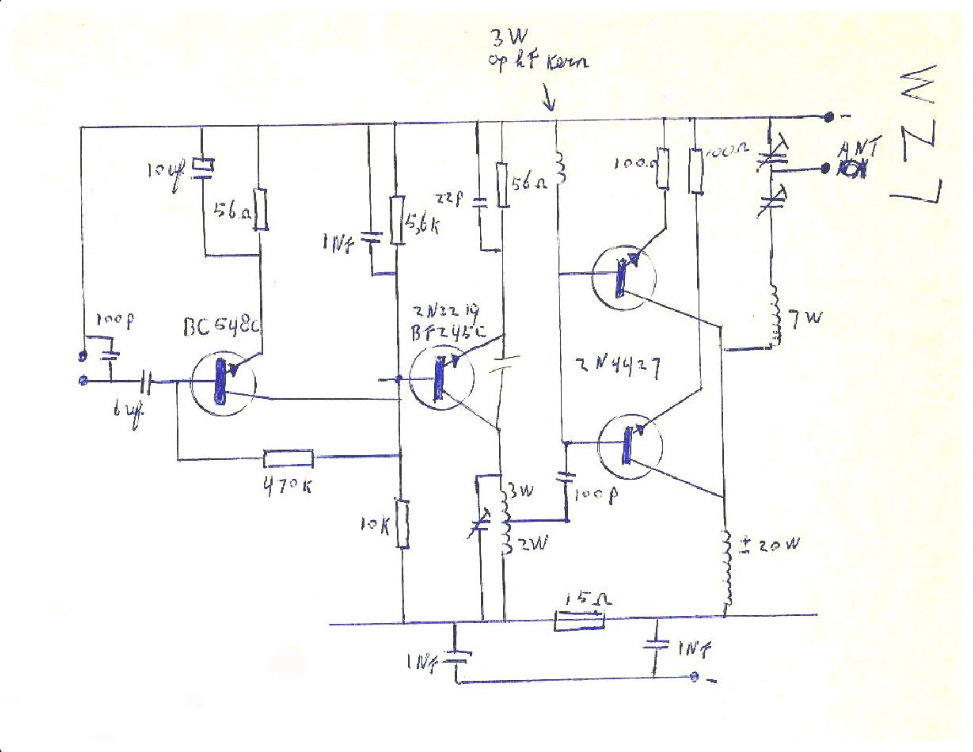 3W
op hF Kern
WZ7
-
ANT
10uf
56Ω
1NF
5,6K
22P
56Ω
100Ω
100Ω
100P
BC548C
2N2219
BF245C
7W
2N4427
6uf
470K
10K
3W
2W
100P
± 20W
15Ω
1NF
1NF
-